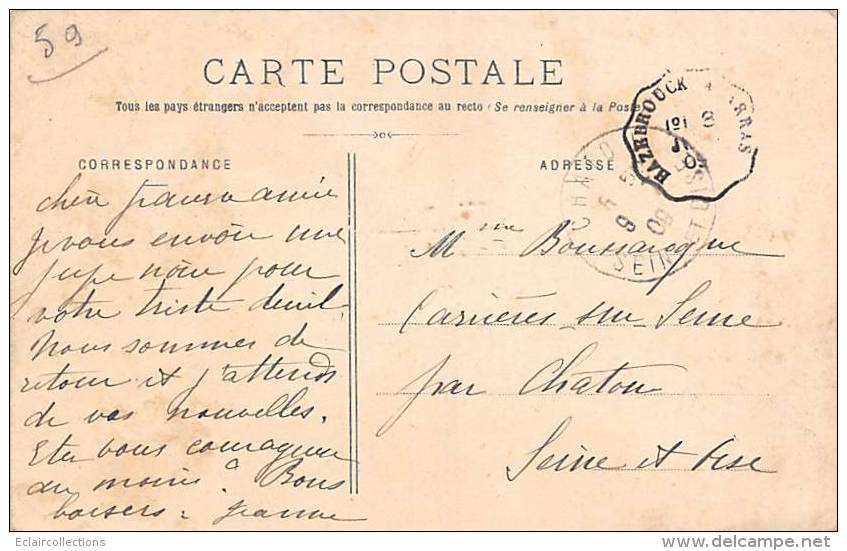 59
CARTE POSTALE
Tous les pays étrangers n'acceptent pas la correspondance au recto (Se renseigner à la Poste
CORRESPONDANCE
ADRESSE
HAZEBROUCK A ARRAS
CHATOU
SEINE ET OISE
chère pauvre amie
je vous envoie une
jupe noire pour
votre triste deuil.
Nous sommes de
retour et j'attends
de vos nouvelles.
Etes vous courageuse
au moins? Bons
baisers = Jeanne
Mme Boussarogue
Carrières sur Seine
par Chatou
Seine et Oise
Eclaircollections
www.delcampe.net